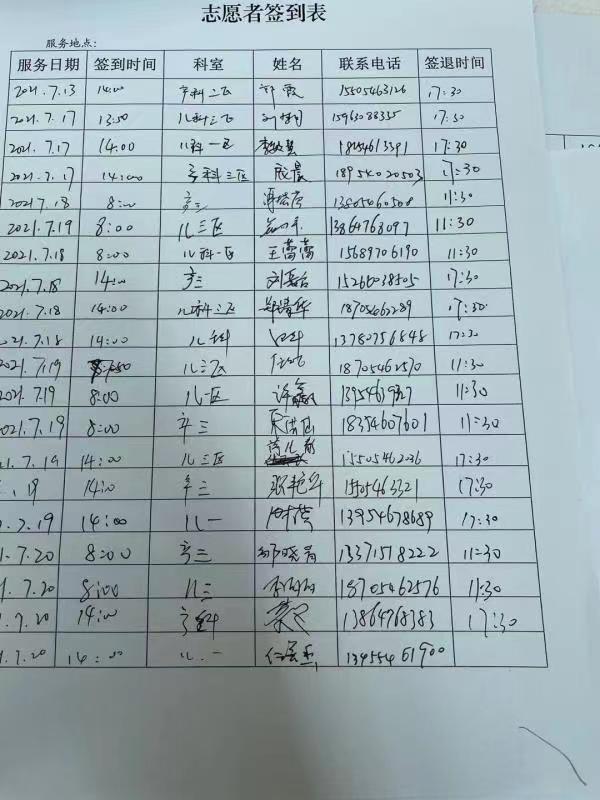 志愿者签到表
服务地点:
服务日期 签到时间 科室 姓名 联系电话 签退时间
2021.7.13 14:00 产科二区 霞 15505463126 17:30
2021.7.17 13:50 儿科三区 15963088335 17:30
2021.7.17 14:00 儿科一区 18254613391 17:30
2021.7.17 14:00 产科三区 晨 18954020503 17:30
2021.7.18 8:00 产三 13805060508 11:30
2021.7.19 8:00 儿三区 13864768097 11:30
2021.7.18 8:00 儿科一区 王蒿蒿 15689706190 11:30
2021.7.18 14:00 产三 刘 15266038505 17:30
2021.7.18 14:00 儿科三区 郑清华 18705462289 17:30
2021.7.18 14:00 儿科 13780756848 17:30
2021.7.19 儿三区 18705462570 11:30
2021.7.19 8:00 儿一区 许鑫 11:30
2021.7.19 8:00 产三 18354607601 11:30
21.7.19 14:00 儿三区 15505462036 17:30
19 14:00 产三 张艳华 15505463321 17:30
.7.19 14:00 儿一 13954678689 17:30
1.7.20 8:00 产三 邹晓 13371518222 11:30
1.7.20 8:00 儿三 18705462576 11:30
1.7.20 14:00 产科 13864768383 17:30
1.7.20 14:00 儿一 13955461900